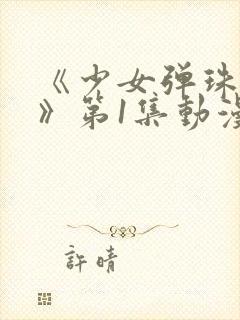 《少女弹珠
》第1集動漫
許晴